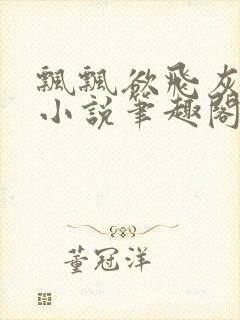 飄飄欲飛灰
小說筆趣閣
董冠洋